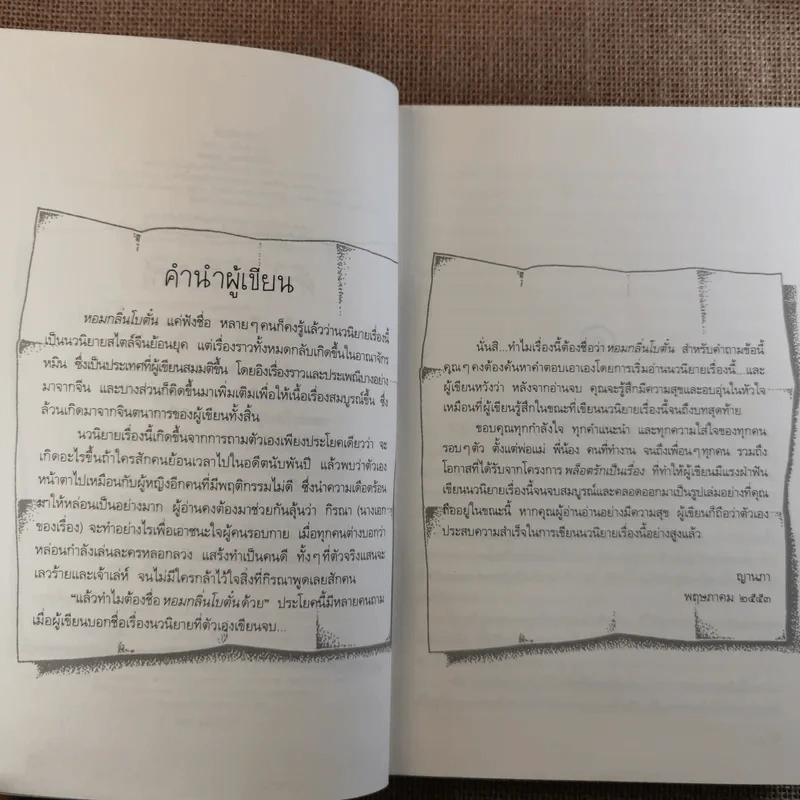 คำนำผู้เขียน
หอมกลิ่นโบตั๋น แค่ฟังชื่อ หลายๆ คนก็คงรู้แล้วว่านวนิยายเรื่องนี้
เป็นนวนิยายสไตล์จีนย้อนยุค แต่เรื่องราวทั้งหมดกลับเกิดขึ้นในอาณาจักร
หมิน ซึ่งเป็นประเทศที่ผู้เขียนสมมติขึ้น โดยอิงเรื่องราวและประเพณีบางอย่าง
มาจากจีน และบางส่วนก็คิดขึ้นมาเพิ่มเติมเพื่อให้เนื้อเรื่องสมบูรณ์ขึ้น ซึ่ง
ล้วนเกิดมาจากจินตนาการของผู้เขียนทั้งสิ้น
นวนิยายเรื่องนี้เกิดขึ้นจากการถามตัวเองเพียงประโยคเดียวว่า จะ
เกิดอะไรขึ้นถ้าใครสักคนย้อนเวลาไปในอดีตนับพันปี แล้วพบว่าตัวเอง
หน้าตาไปเหมือนกับผู้หญิงอีกคนที่มีพฤติกรรมไม่ดี ซึ่งนำความเดือดร้อน
มาให้หล่อนเป็นอย่างมาก ผู้อ่านคงต้องมาช่วยกันลุ้นว่า กิรณา (นางเอก
ของเรื่อง) จะทำอย่างไรเพื่อเอาชนะใจผู้คนรอบกาย เมื่อทุกคนต่างบอกว่า
หล่อนกำลังเล่นละครหลอกลวง แสร้งทำเป็นคนดี ทั้งๆ ที่ตัวจริงแสนจะ
เลวร้ายและเจ้าเล่ห์ จนไม่มีใครกล้าไว้ใจสิ่งที่กิรณาพูดเลยสักคน
“แล้วทำไมต้องชื่อ หอมกลิ่นโบตั๋น ด้วย” ประโยคนี้มีหลายคนถาม
เมื่อผู้เขียนบอกชื่อเรื่องนวนิยายที่ตัวเองเขียนจบ...
นั่นสิ...ทำไมเรื่องนี้ต้องชื่อว่า หอมกลิ่นโบตั๋น สำหรับคำถามข้อนี้
คุณๆ คงต้องค้นหาคำตอบเอาเองโดยการเริ่มอ่านนวนิยายเรื่องนี้...และ
ผู้เขียนหวังว่า หลังจากอ่านจบ คุณจะรู้สึกมีความสุขและอบอุ่นในหัวใจ
เหมือนที่ผู้เขียนรู้สึกในขณะที่เขียนนวนิยายเรื่องนี้จนถึงบทสุดท้าย
ขอบคุณทุกกำลังใจ ทุกคำแนะนำ และทุกความใส่ใจของทุกคน
รอบๆ ตัว ตั้งแต่พ่อแม่ พี่น้อง คนที่ทำงาน จนถึงเพื่อนๆ ทุกคน รวมถึง
โอกาสที่ได้รับจากโครงการ พล็อตรักเป็นเรื่อง ที่ทำให้ผู้เขียนมีแรงฝ่าฟัน
เขียนนวนิยายเรื่องนี้จนจบสมบูรณ์และคลอดออกมาเป็นรูปเล่มอย่างที่คุณ
ถืออยู่ในขณะนี้ หากคุณผู้อ่านอ่านอย่างมีความสุข ผู้เขียนก็ถือว่าตัวเอง
ประสบความสำเร็จในการเขียนนวนิยายเรื่องนี้อย่างสูงแล้ว
ญานภา
พฤษภาคม ๒๕๕๓